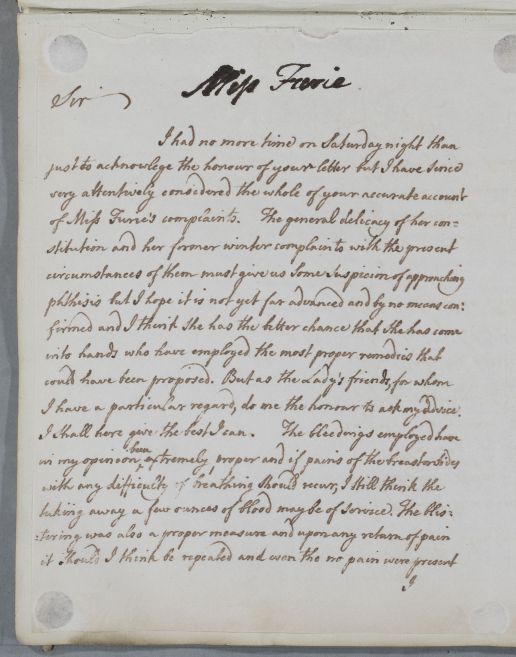 Miss Furie.
Sir
I had no more time on Saturday night than
just to acknowlege the honour of your letter but I have since
very attentively considered the whole of your accurate account
of Miss Furie's complaints. The general delicacy of her con=
stitution and her former winter complaints with the present
circumstances of them must give us some suspicion of approaching
phthisis but I hope it is not yet far advanced and by no means con:
firmed and I think she has the better chance that she has come
into hands who have employed the most proper remedies that
could have been proposed. But as the Lady's friends, for whom
I have a particular regard, do me the honour to ask my advice.
I shall here give the best I can. The bleedings employed have
in my opinion been extremely proper and if pains of the breast or sides
with any difficulty of breathing should recur, I still think the
taking away a few ounces of blood may be of service. The blis=
:tering was also a proper measure and upon any return of pain
it should I think be repeated and even tho no pain were present
I